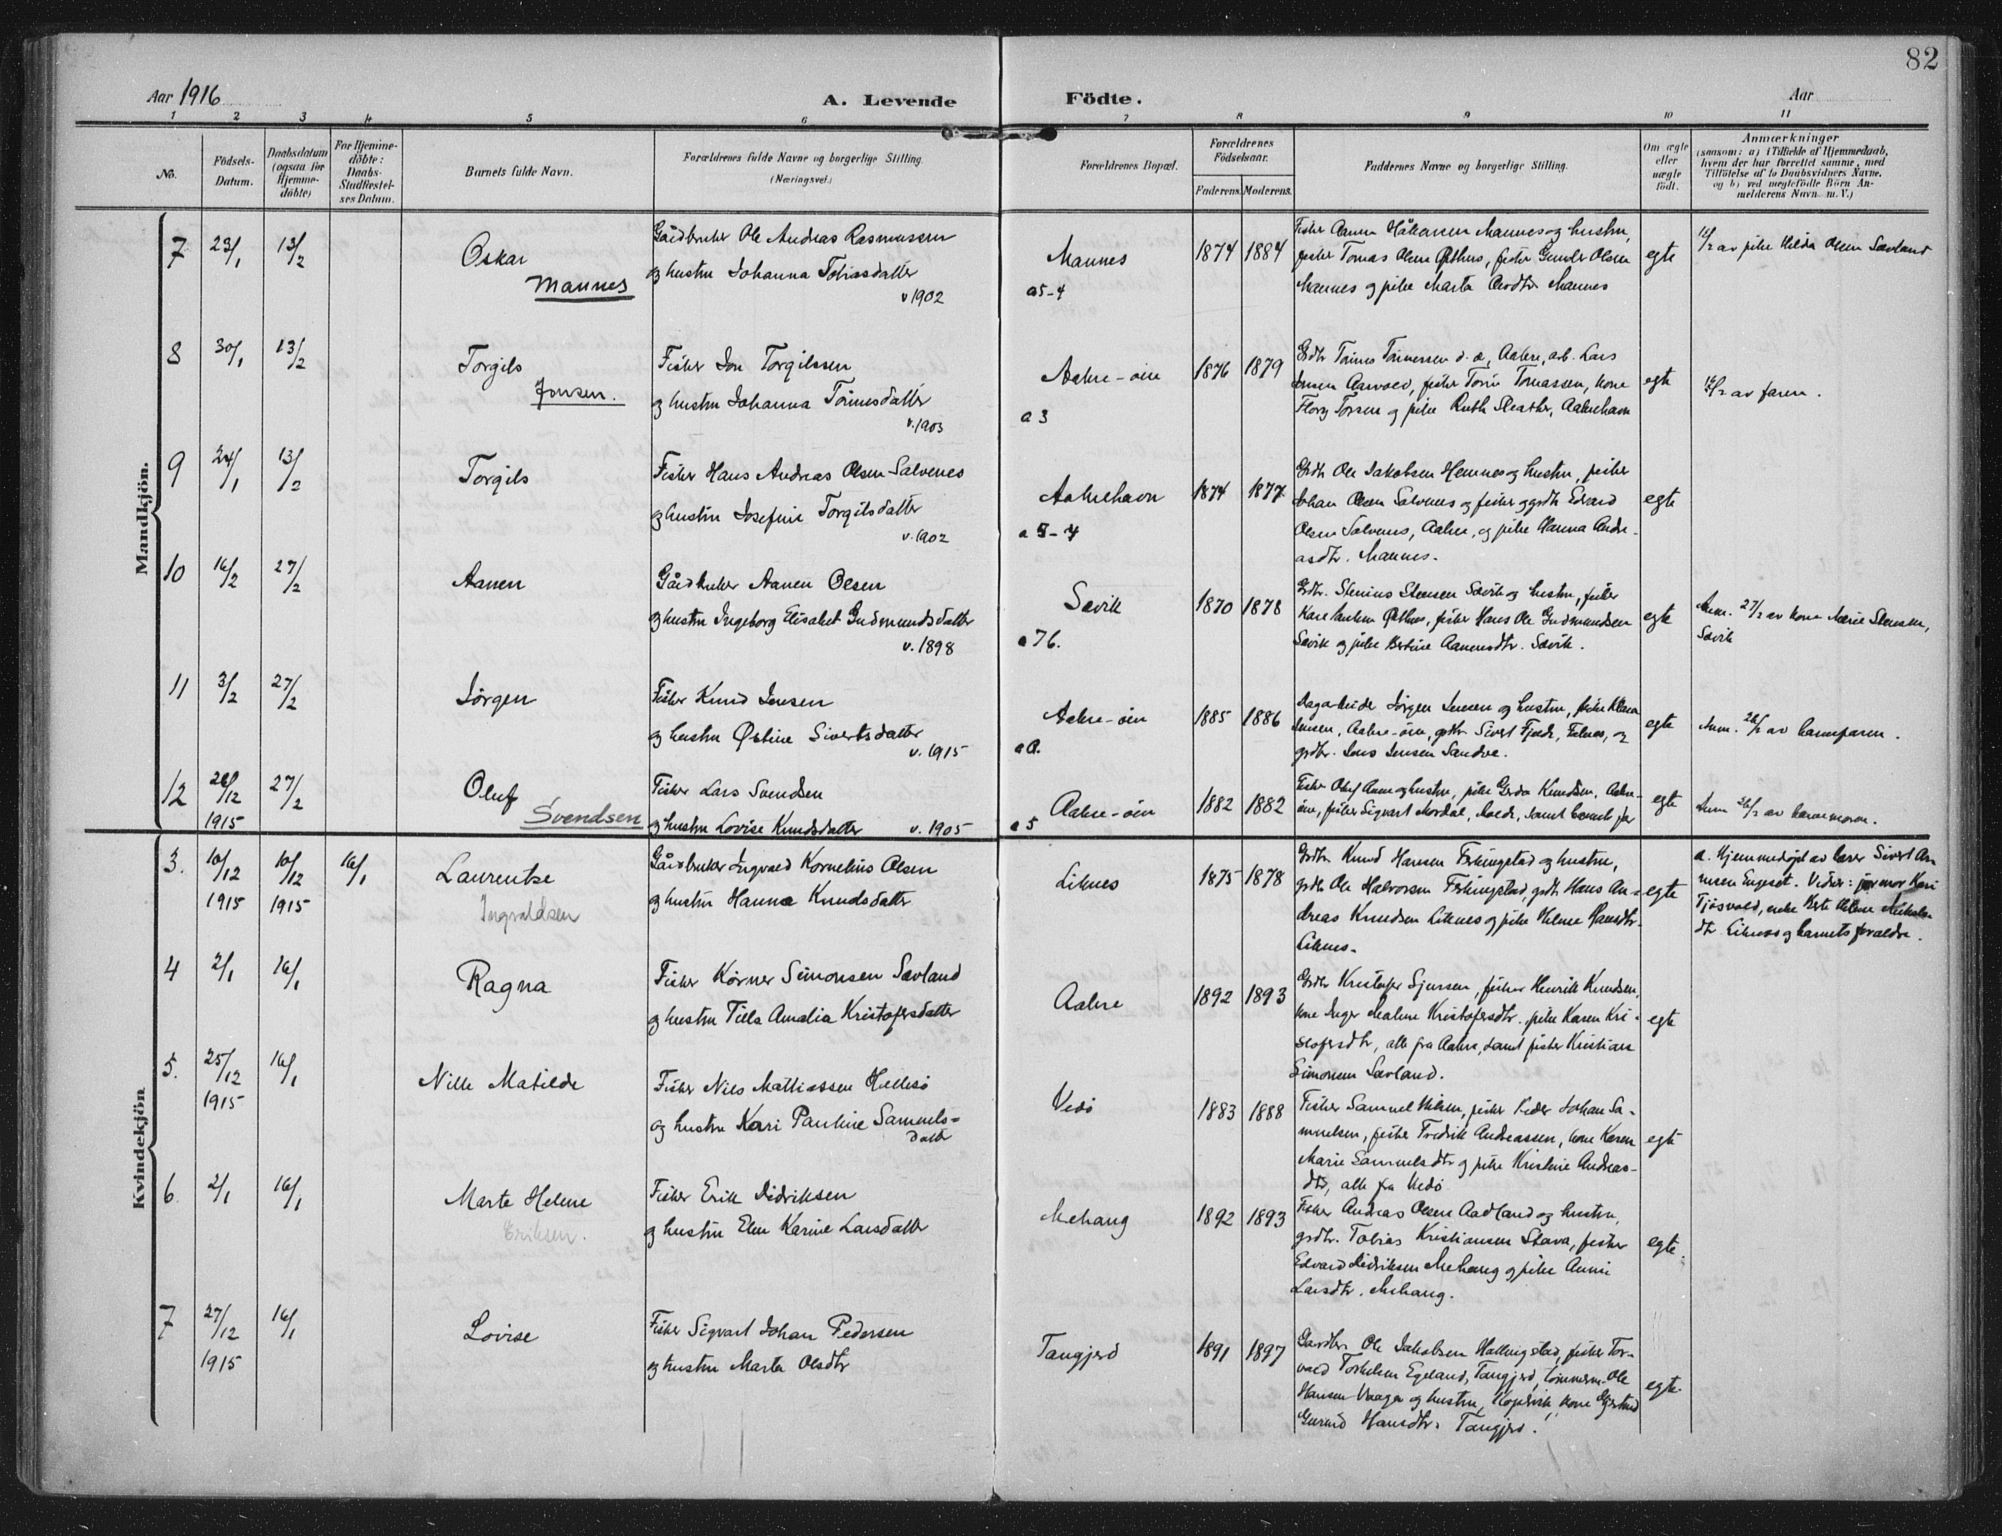 82
Aar 1916
A. Levende Födte.
Aar
1 2 3 4 5 6 7 8 9 10 11
No.
Födsels-Datum.
Daabsdatum (ogsaa for Hjemme-döbte)
For Hjemme-döbte: Daabs-Stadfæstel-ses Datum.
Barnets fulde Navn.
Forældrenes fulde Navne og borgerlige Stilling. (Næringsvei.)
Forældrenes Bopæl.
Forældrenes Födselsaar.
Faderens. Moderens.
Faddernes Navne og borgerlige Stilling.
Om ægte eller uægte födt.
Anmærkninger
(saasom: a) i Tilfælde af Hjemmedaab,
hvem der har forrettet samme, med
Tilföielse af to Daabsvidners Navne,
og b) ved uægtefödte Börn An-
melderens Navn m. V.)
Mandkjön.
7 23/1 13/2 Oskar Mannes
Gårdbruker Ole Andreas Rasmussen
og hustru Johanna Tobiasdatter
v 1902
Mannes 1874 1884
a5-4
fisker Tomas Olsen Østhus, fisker Gunder Olsen
Mannes og pike Marta Mannes
egte
av pike Hilda Olsen Sævland
8 30/1 13/2 Torgils Jonsen.
Fisker Jon Torgilssen
og hustru Johanna Tönnesdatter
v.1903
Aakre-øen 1876 1879
a 3
Grdbr Tönnes Tönnessen d. æ, Aakre, arb. Lars
Jensen fisker Tomassen, kone
og pike Ruth Aakrehavn
egte
av faren.
9 24/1 13/2 Torgils
Fisker Hans Andreas Olsen Salvenes
og hustru Josefine Torgilsdatter
v.1902
Aakrehavn 1874 1877
Grdb Ole Jakobsen Hemnes og hustru, fisker
Johan Olsen Salvenes og fisker og grdb Edvard
Olsen Salvenes, Aakre, og pike Hanna Andre-
asdtr. Mannes.
egte
10 16/2 27/2 Aanen
Gårdbruker Aanen Olsen
og hustru Ingeborg Elisabet Gudmundsdatter
v. 1898
Sævik 1870 1878
a 76.
Grdbr. Stensen Sævik og hustru, fisker
Østhus, fisker Hans Ole Gudmundsen
Sævik og pike Bertine Aanensdtr. Sævik.
egte
Anm. 27/2 av kone Stensen,
Sævik
11 3/2 27/2 Jørgen
Fisker Knud Jensen
og hustru Østine Sivertsdatter
v. 1915
Aakre-øen 1885 1886
a 0.
Jørgen Jensen og hustru, pike Klara
Jensen, Aakre-øen, grdbr. Sivert Falnes, og
grdbr. Jens Jensen Sandve.
egte
Anm. 26/2 av barnefaren.
12 28/12 1915 27/2 Oluf Svendsen
Fisker Lars Svendsen
og hustru Lovise Knudsdatter v. 1905
Aakre-øen 1882 1882
a 5
Fisker Oluf og hustru, pike Gerda Knudsen, Aakre-
øen, fisker Sigvart samt barnets far
egte
Anm 26/2 av barnemoren.
Kvindekjön
3. 10/12 1915 10/12 1915 16/1 Laurentse Ingvaldsen
Gårdbruker Ingvald Kornelius Olsen
og hustru Hanna Knudsdatter
Liknes 1875 1878
Grdbr Knud Hansen Ferkingstad og hustru,
grdb. Ole Halvorsen Ferkingstad, grdb. Hans An-
dreas Knudsen Liknes og pike Helene Hansdtr.
Liknes.
egte
a. Hjemmedøpt av lærer Sivert
Engeset. Vidner: jormor Kari
Tjøsvold, enke Berte Helene
dtr. Liknes og barnets forældre.
4 2/1 16/1 Ragna
Fisker Körner Simonsen Sævland
og hustru Tilla Amalia Kristofersdatter
Aakre 1892 1893
Grdbr Kristofer Sjursen, fisker Henrik Knudsen,
kone Inger Malene Kristofersdtr. pike Karen Kri-
stofersdtr, alle fra Aakre, samt fisker Kristian
Simonsen Sævland.
egte
5. 25/12 1915 16/1 Nille Matilde
Fisker Nils Mathiassen Hellesö
og hustru Kari Pauline Samuels-
datter
Vedö 1883 1888
Fisker Samuel Nilsen, fisker Peder Johan Sa-
muelsen, fisker Fredrik Andreassen, kone Karen
Marie Samuelsdtr og pike Kristine Andreas-
dtr, alle fra Vedö
egte
6. 2/1 16/1 Marte Helene Eriksen.
Fisker Erik Didriksen
og hustru Elen Karine Larsdatter
Mehaug 1892 1893
Fisker Andreas Olsen Aadland og hustru,
grdbr. Tobias Kristiansen Stava, fisker
Edvard Didriksen Mehaug og pike Anna
Larsdtr. Mehaug.
egte
7 27/12 1915 16/1 Lovise
Fisker Sigvart Johan Pedersen
og hustru Marta Olsdtr
Tangjerd 1891 1897
Gardbr. Ole Jakobsen Hallingstad, fisker Tor-
vald Torkelsen Egeland, Tangjerd, tömmerm. Ole
Hansen Vaage og hustru, Kopervik, kone
Gurine Hansdtr. Tangjerd.
egte